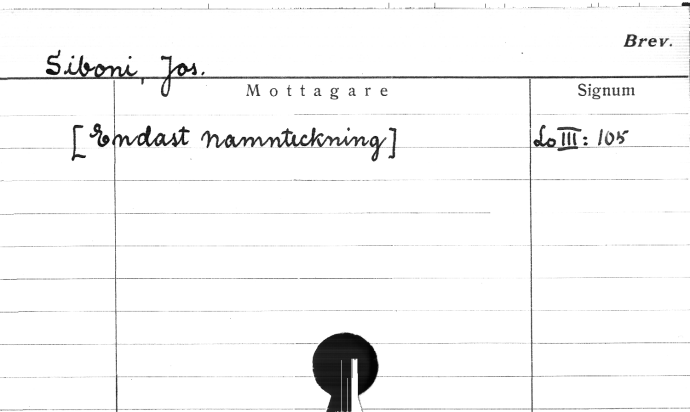 Brev.
Siboni, Jos.
Mottagare Signum
[Endast namnteckning] Lo III: 105